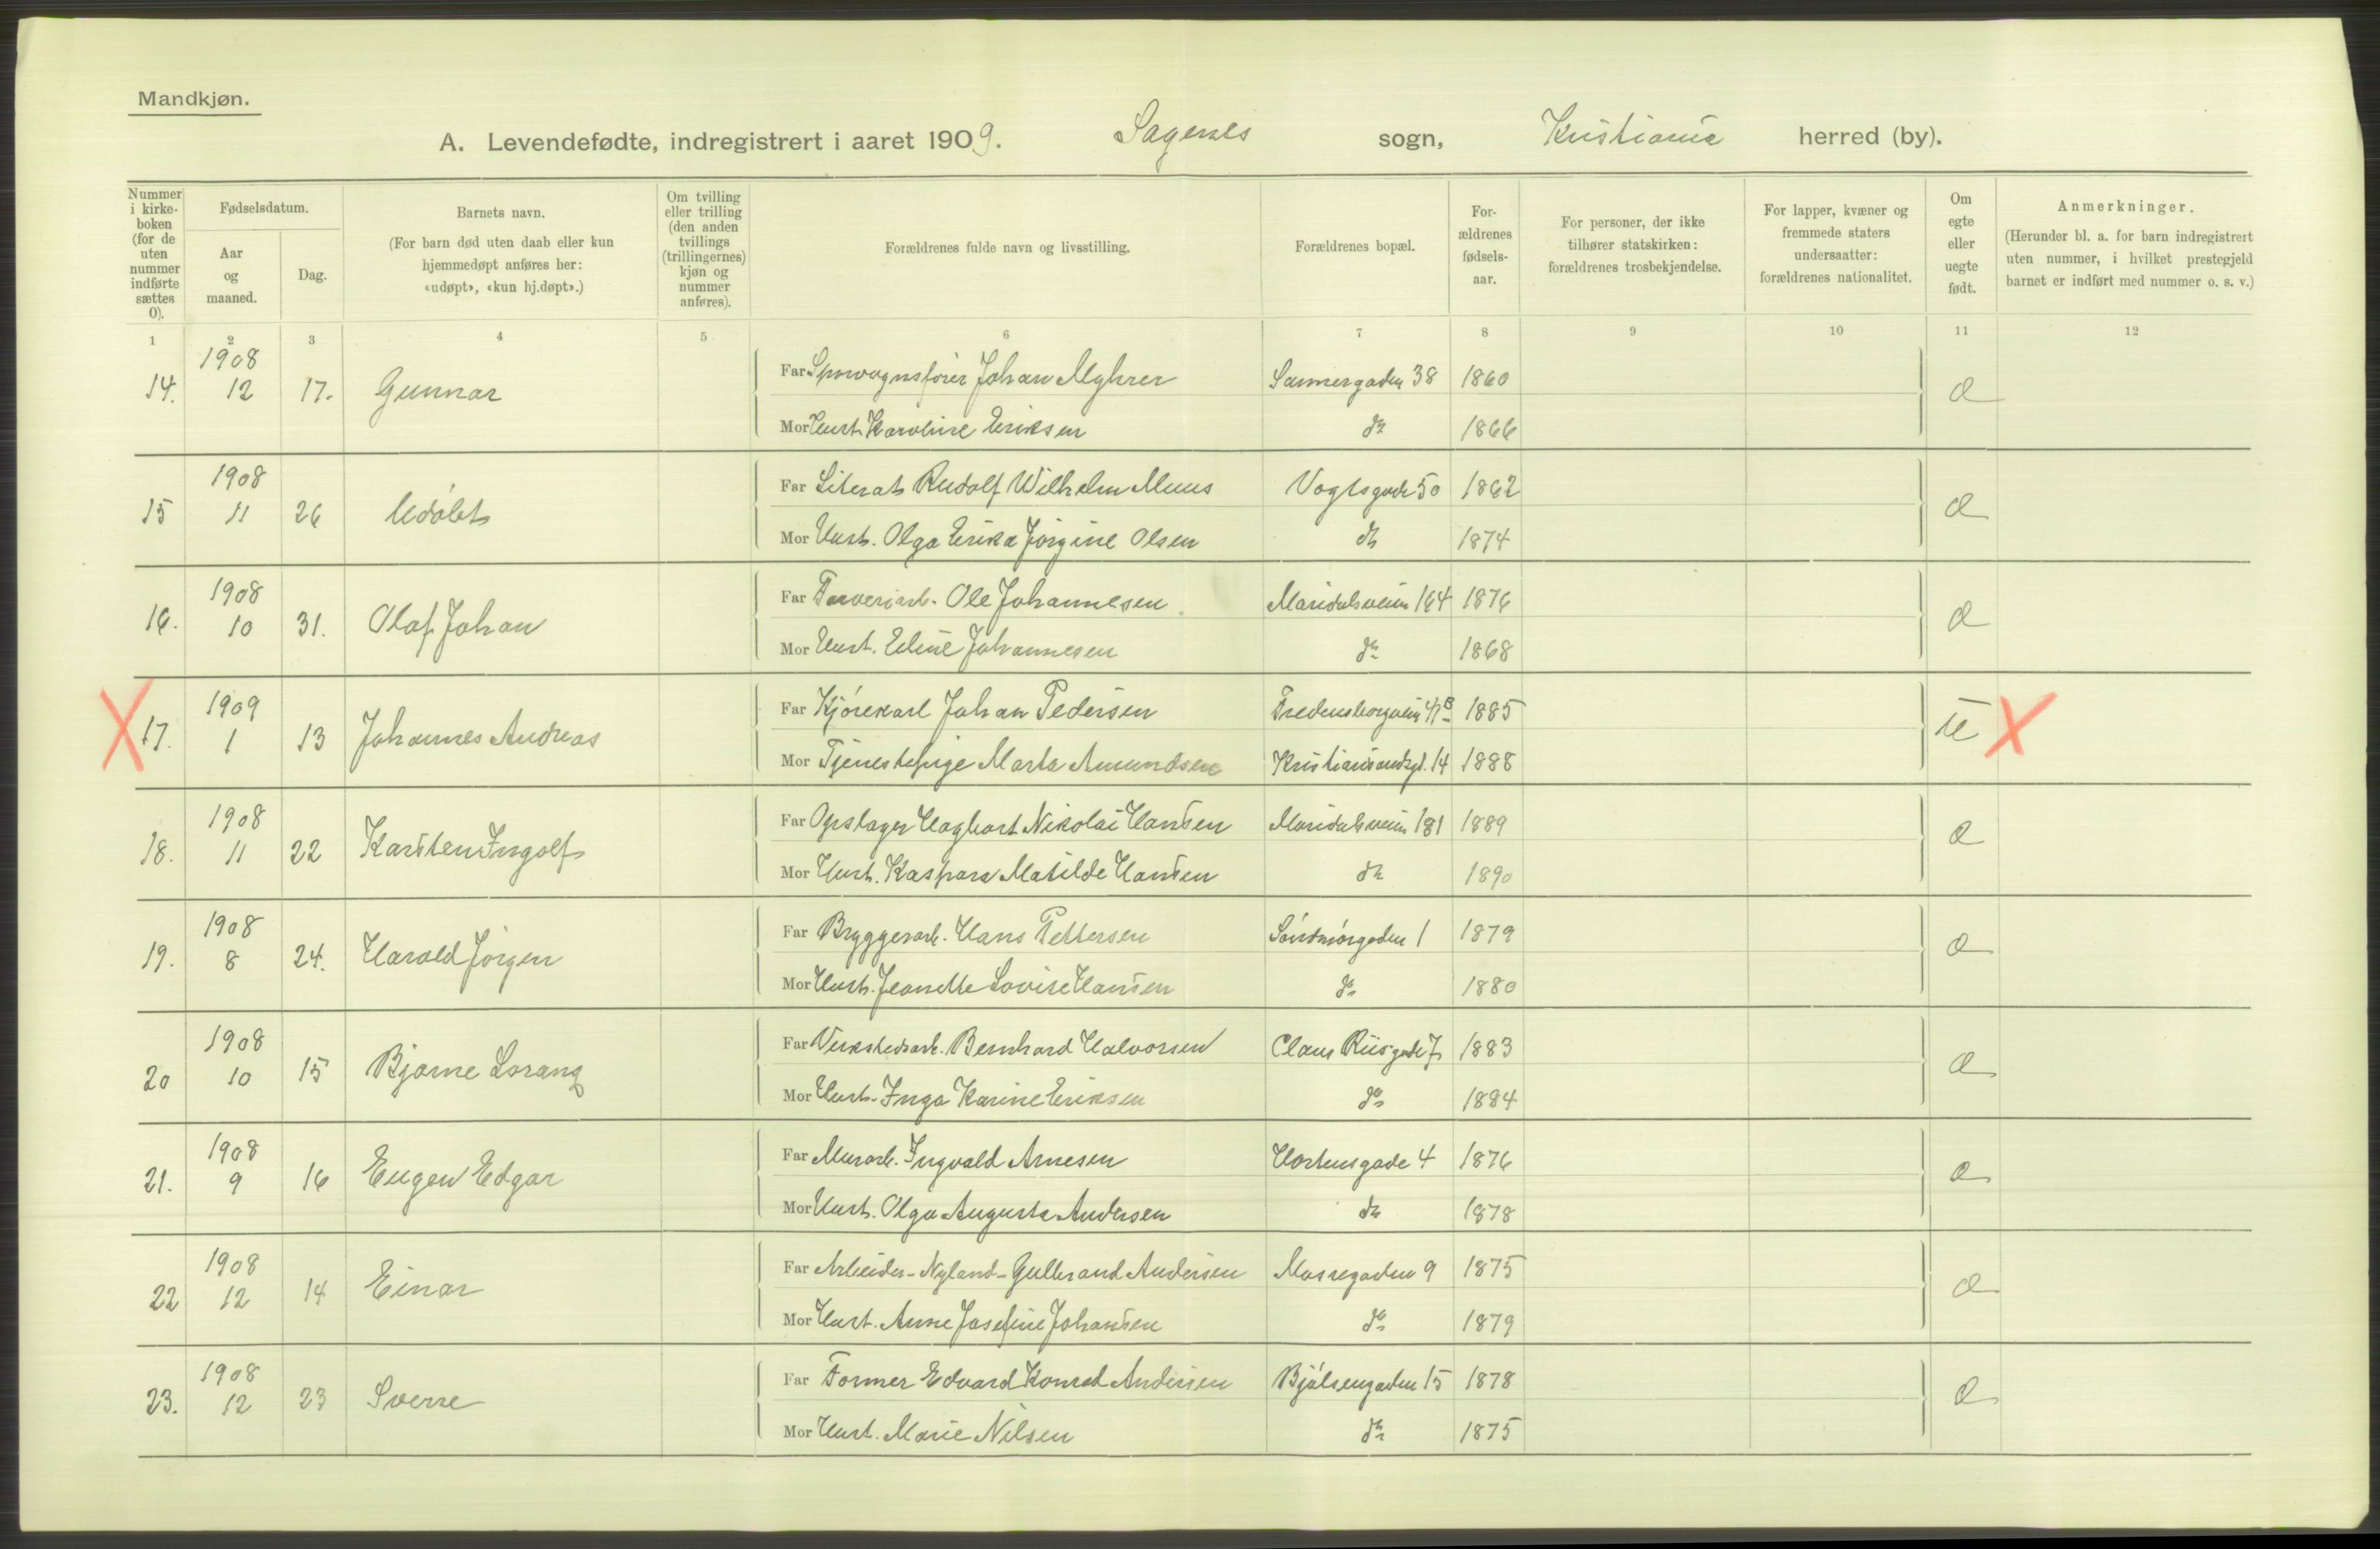 Mandkjøn.
A. Levendefødte, indregistrert i aaret 1909. Sagenes sogn, Kristiania herred (by).
Nummer i kirke-boken (for de uten nummer indførte sættes 0).
Fødselsdatum.
Aar og maaned.
Dag.
Barnets navn.
(For barn død uten daab eller kun hjemmedøpt anføres her: «udøpt», «kun hj.døpt».)
Om tvilling eller trilling (den anden tvillings (trillingernes) kjøn og nummer anføres).
Forældrenes fulde navn og livsstilling.
Forældrenes bopæl.
For-ældrenes fødsels-aar.
For personer, der ikke tilhører statskirken: forældrenes trosbekjendelse.
For lapper, kvæner og fremmede staters undersaatter: forældrenes nationalitet.
Om egte eller uegte født.
Anmerkninger.
(Herunder bl. a. for barn indregistrert uten nummer, i hvilket prestegjeld barnet er indført med nummer o. s. v.)
1 2 3 4 5 6 7 8 9 10 11 12
14. 1908 12 17. Gunnar
Far Sporvognsfører Johan Myhrer Sannergaden 38 1860
Mor Hust. Karoline Eriksen do 1866
15 1908 11 26 Udøbt
Far Literat Rudolf Wilhelm Muus Vogtsgade 50 1862
Mor Hust. Olga Erika Jørgine Olsen do 1874
16. 1908 10 31. Olaf Johan
Far Farveriarb. Ole Johannesen Maridalsveien 164 1876
Mor Hust. Eline Johannesen do 1868
X 17. 1909 1 13 Johannes Andreas X
Far Kjørekarl Johan Pedersen Fredensborgveien 41B 1885
Mor Tjenestepige Marta Amundsen Kristiansandsgd. 14 1888
18. 1908 11 22 Karsten Ingolf
Far Opslager Hagbart Nikolai Hansen Maridalsveien 181 1889
Mor Hust. Kaspara Matilde Hansen do 1890
19. 1908 8 24. Harald Jørgen
Far Bryggerarb. Hans Pettersen Søndmørgaden 1 1879
Mor Hust. Jeanette Lovise Hansen do 1880
20 1908 10 15 Bjarne Lorang
Far Verkstedsarb. Bernhard Halvorsen Claus Riisgade 7 1883
Mor Hust. Inga Karine Eriksen do 1884
21. 1908 9 16 Eugen Edgar
Far Murarb. Ingvald Arnesen Hortensgade 4 1876
Mor Hust. Olga Augusta Andersen do 1878
22 1908 12 14 Einar
Far Arbeider - Nyland - Gulbrand Andersen Mossegaden 9 1875
Mor Hust. Anne Josefine Johansen do 1879
23. 1908 12 23 Sverre
Far Former Edvard Konrad Andersen Bjølsengaden 15 1878
Mor Hust. Marie Nilsen do 1875